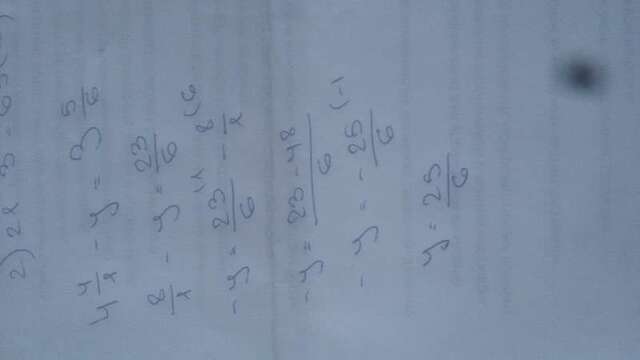 2)
4 4/1 - y = 3 5/6
8/1 - y = 23/6 (6
-y = 23/6 - 8/1
-y = 23-48/6
-y = -25/6 (-1
y = 25/6